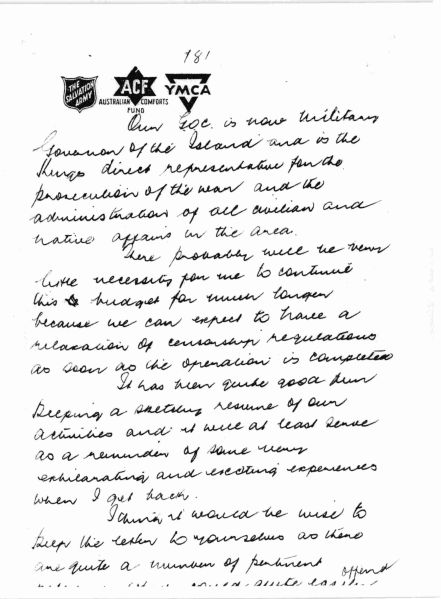 181
THE SALVATION ARMY
ACF
AUSTRALIAN COMFORTS FUND
YMCA
Our G.O.C. is now Military
Governor of the Island and is the
Kings direct representative for the
prosecution of the war and the
administration of all civilian and
native affairs in the area.
There probably will be very
little necessity for me to continue
this budget for much longer
because we can expect to have a
relaxation of censorship regulations
as soon as the operation is completed
It has been quite good fun
keeping a sketchy resume of our
activities and it will at least serve
as a reminder of some very
exhilarating and exciting experiences
when I get back.
I think it would be wise to
keep the letter to yourselves as there
are quite a number of pertinent
offend
could quite easily